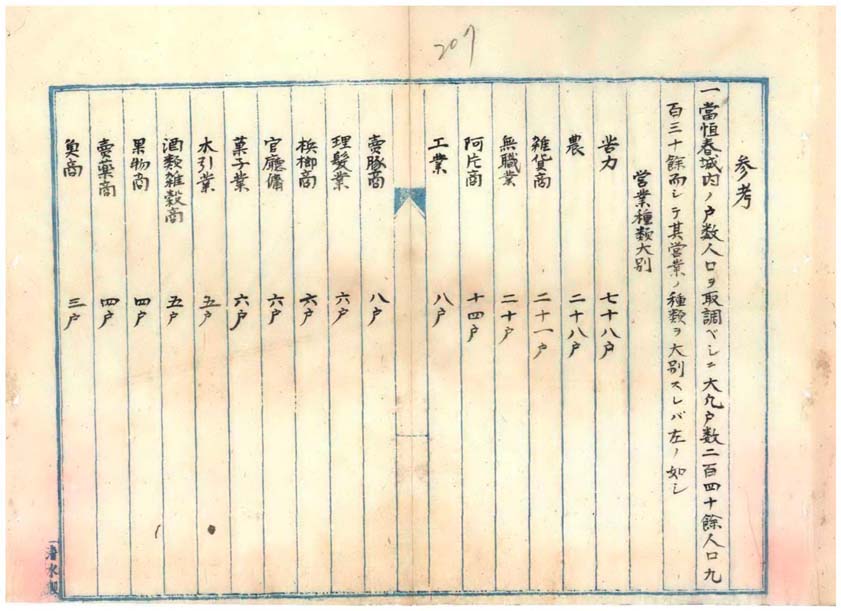 207
参考
一當恒春城内ノ戸数人口ヲ取調ベシニ大凡戸数二百四十餘人口九
百三十餘而シテ其営業ノ種類ヲ大別スレバ左ノ如シ
営業種類大別
苦力 七十八戸
農 二十八戸
雑貨商 二十一戸
無職業 二十戸
阿片商 十四戸
工業 八戸
賣豚商 八戸
理髪業 六戸
梹榔商 六戸
官廳傭 六戸
菓子業 六戸
水引業 五戸
酒類雑穀商 五戸
果物商 四戸
賣藥商 四戸
魚商 三戸